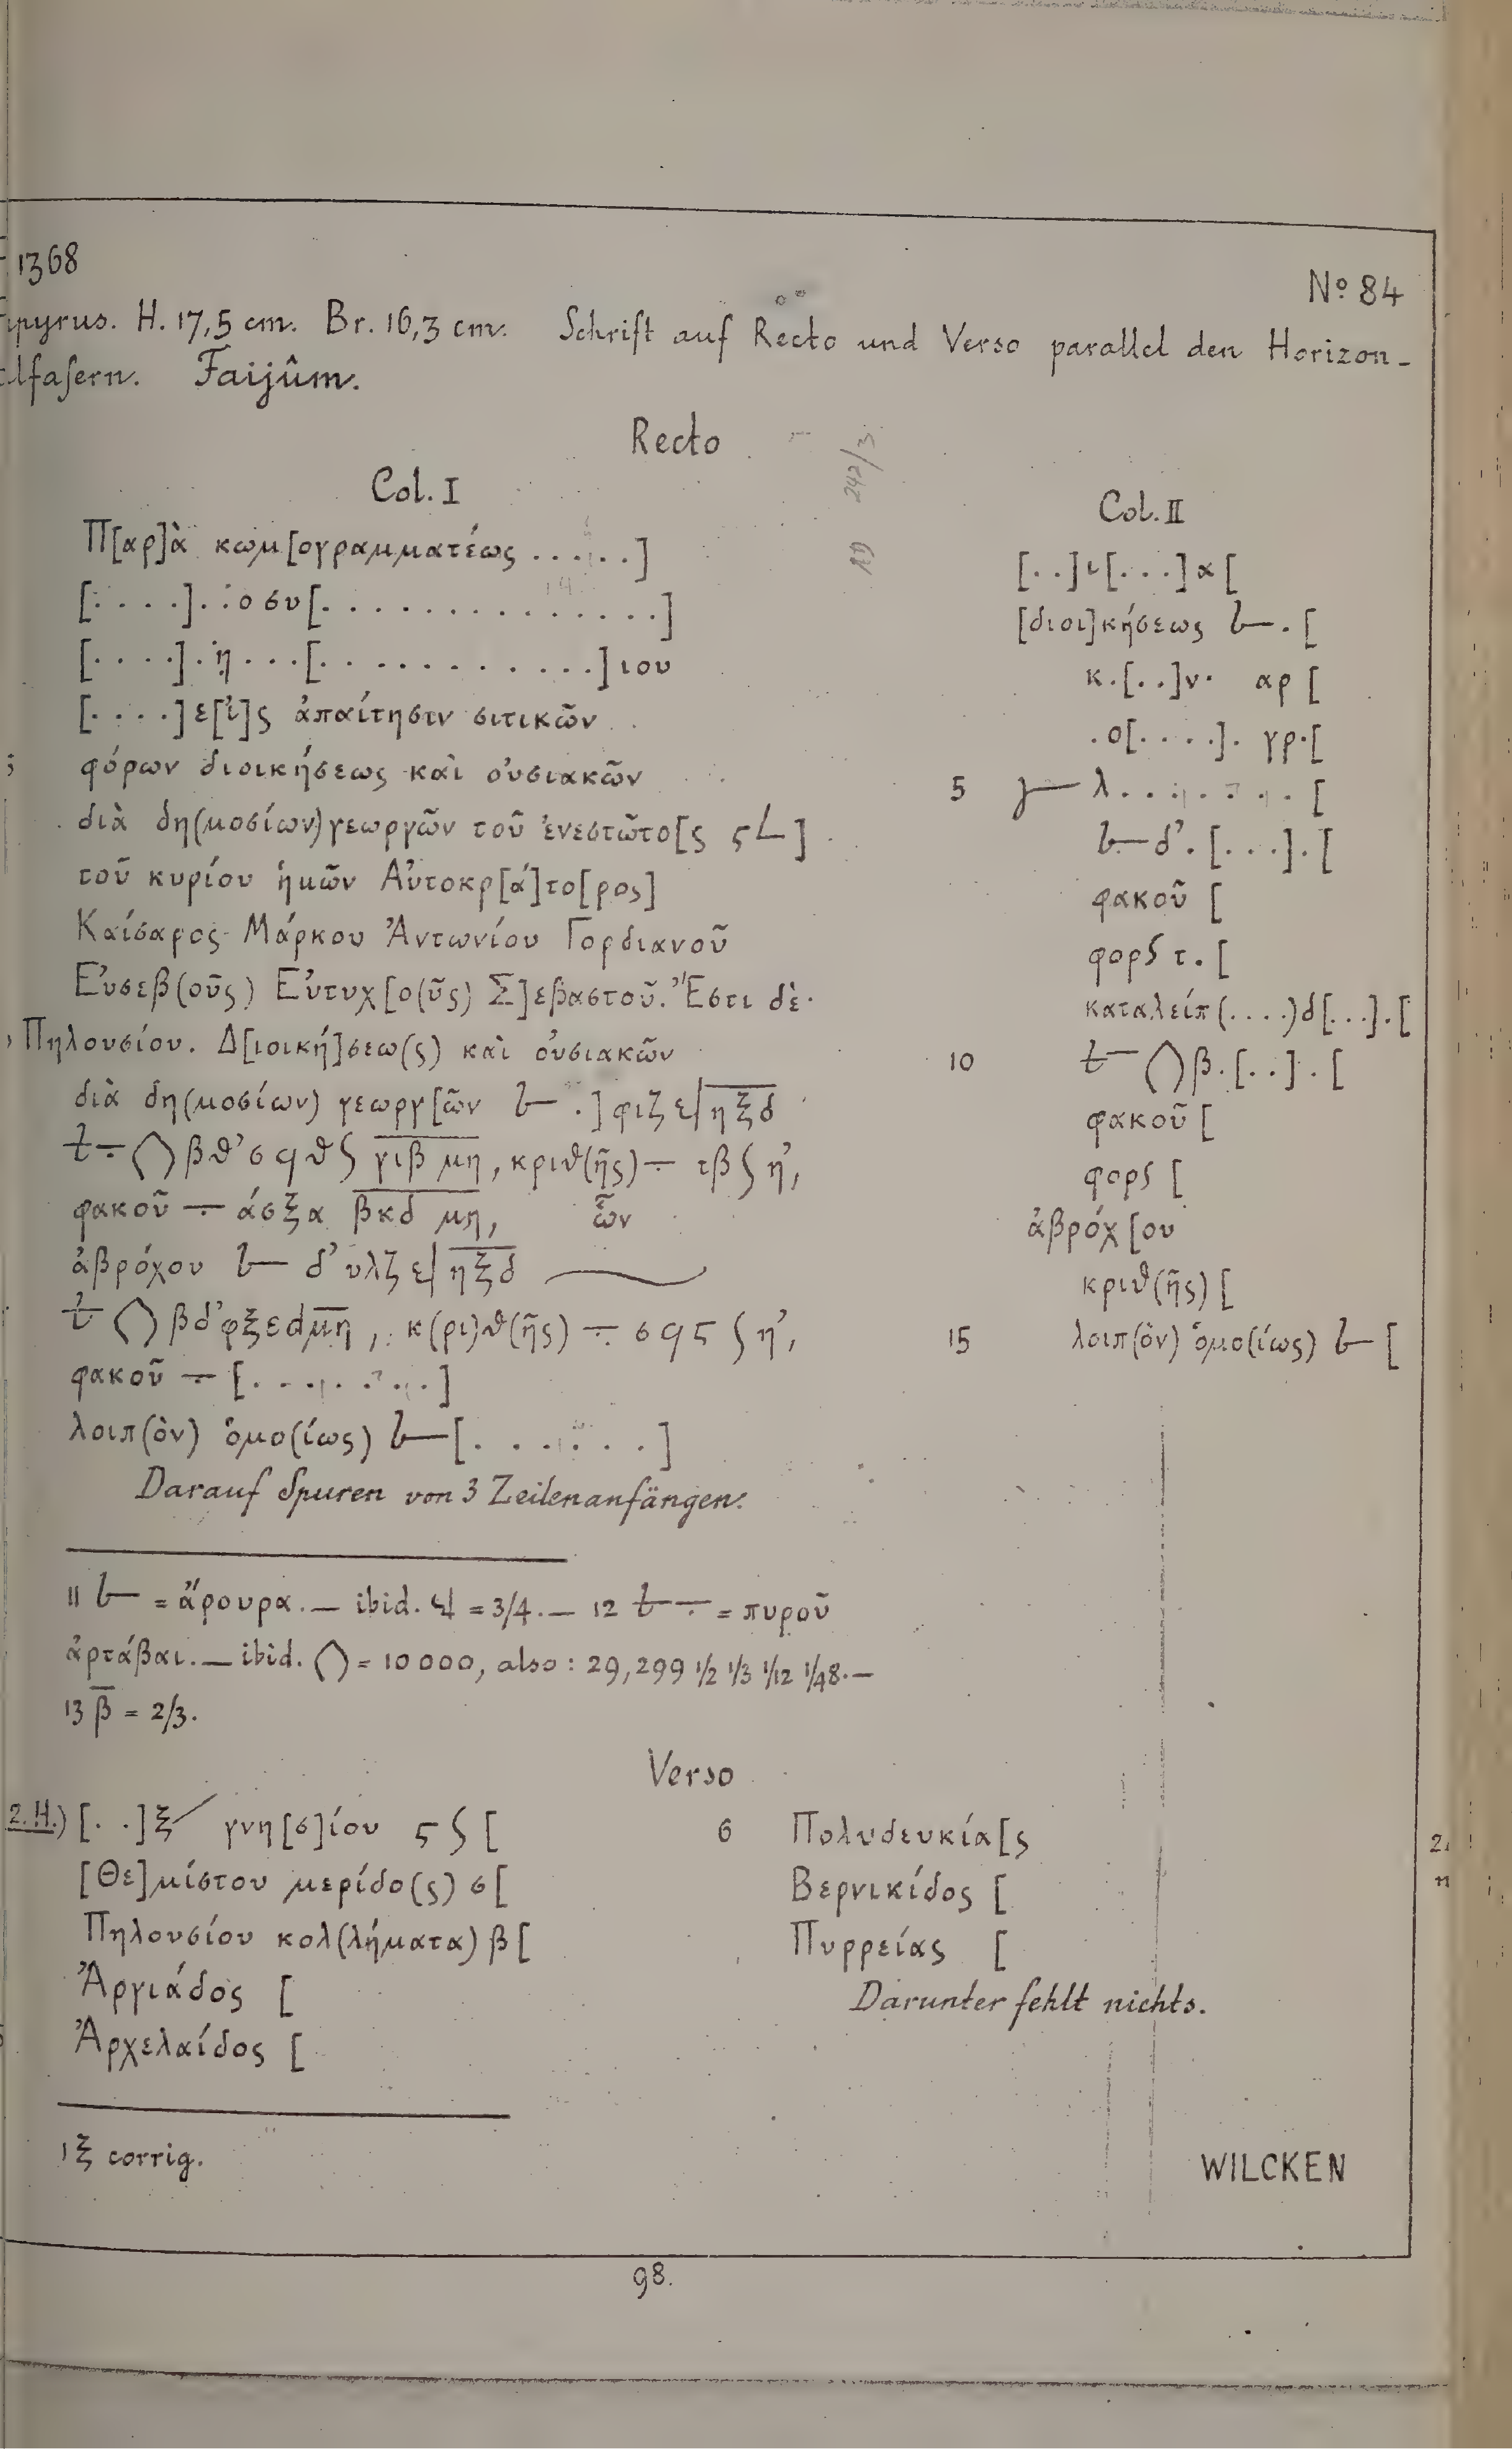 1368
Nº 84
pyrus. H. 17,5 cm. Br. 16,3 cm. Schrift auf Recto und Verso parallel den Horizon-
lfasern. Faijûm.
Recto
Col. I
Π[αρ]ὰ κωμ[ογραμματέως ......]
[....]..οσυ[..............]
[....].η...[............]ιου
[....]ε[ἰ]ς ἀπαίτησιν σιτικῶν
φόρων διοικήσεως καὶ οὐσιακῶν
διὰ δη(μοσίων) γεωργῶν τοῦ ἐνεστῶτο[ς ϛ L]
τοῦ κυρίου ἡμῶν Αὐτοκρ[ά]το[ρος]
Καίσαρος Μάρκου Ἀντωνίου Γορδιανοῦ
Εὐσεβ(οῦς) Εὐτυχ[ο(ῦς) Σ]εβαστοῦ. Ἔστι δὲ·
Πηλουσίου. Δ[ιοική]σεω(ς) καὶ οὐσιακῶν
διὰ δη(μοσίων) γεωργ[ῶν .] φιζ ηξδ
βθ'σϙθ γιβ μη, κριθ(ῆς) τβ η',
φακοῦ άσξα βκδ μη, ὧν
ἀβρόχου δ'υλζ ηξδ
βδ'φξεd μη, κ(ρι)θ(ῆς) σϙϛ η',
φακοῦ [.......]
λοιπ(ὸν) ὁμο(ίως) [.......]
Darauf Spuren von 3 Zeilenanfängen.
Col. II
[..]ι[...]α[
[διοι]κήσεως .[
κ.[..]ν. αρ[
.ο[....]. γρ.[
5 λ........[
δ'.[...].[
φακοῦ [
φορS τ.[
καταλείπ(....)d[...].[
10 β.[..].[
φακοῦ [
φορS [
ἀβρόχ[ου
κριθ(ῆς) [
15 λοιπ(ὸν) ὁμο(ίως) [
11 = ἄρουρα. — ibid. = 3/4. — 12 = πυροῦ
ἀρτάβαι. — ibid. = 10000, also: 29,299 1/2 1/3 1/12 1/48. —
13 β̅ = 2/3.
Verso
2.H.) [..]ξ γνη[σ]ίου ϛ [
[Θε]μίστου μερίδο(ς) σ[
Πηλουσίου κολ(λήματα) β[
Ἀργιάδος [
Ἀρχελαίδος [
6 Πολυδευκία[ς
Βερνικίδος [
Πυρρείας [
Darunter fehlt nichts.
1 ξ corrig.
WILCKEN
98.